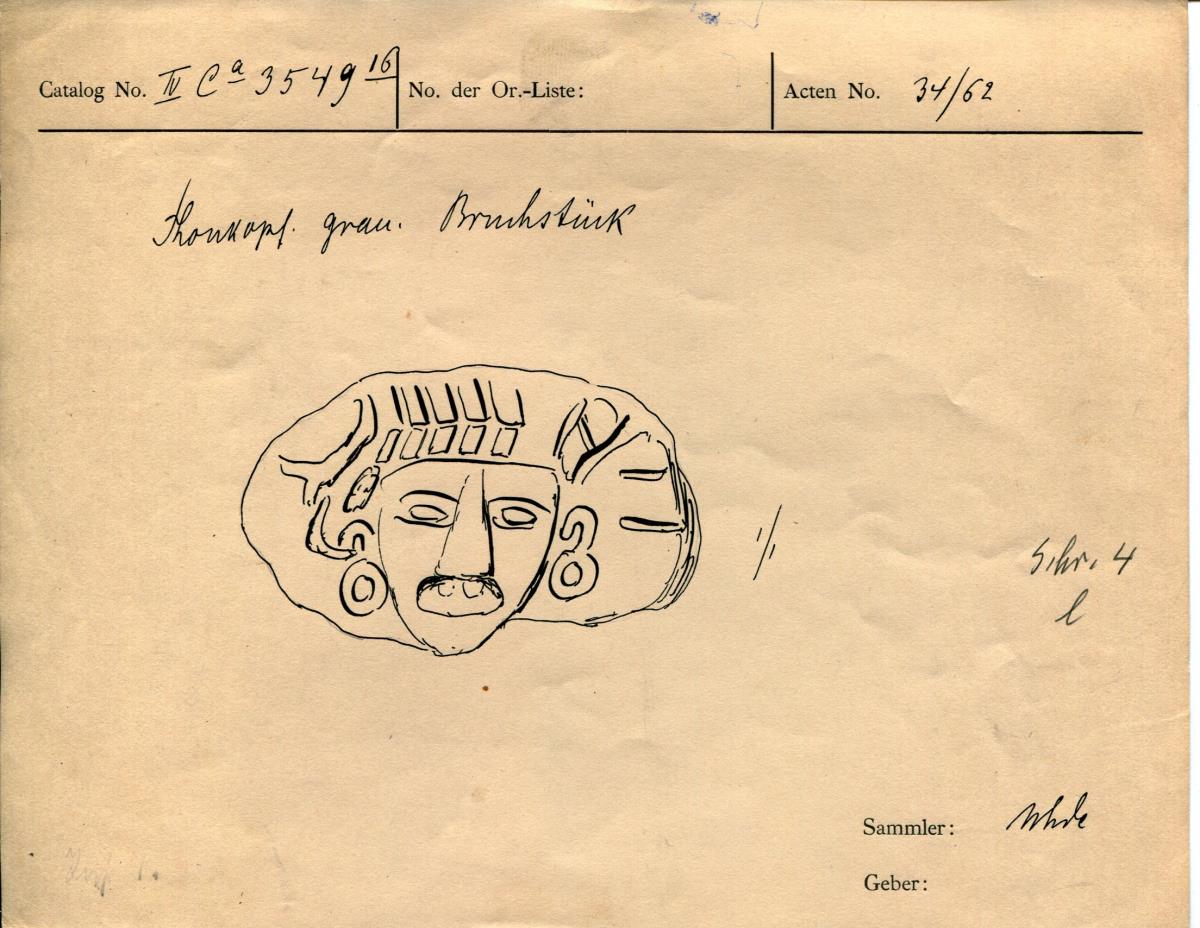 Catalog No. IV Ca 3549 16 No. der Or.-Liste: Acten No. 34/62
Thonkopf. grau. Bruchstück
1/1
Schr. 4
l
Sammler: Uhde
Geber: